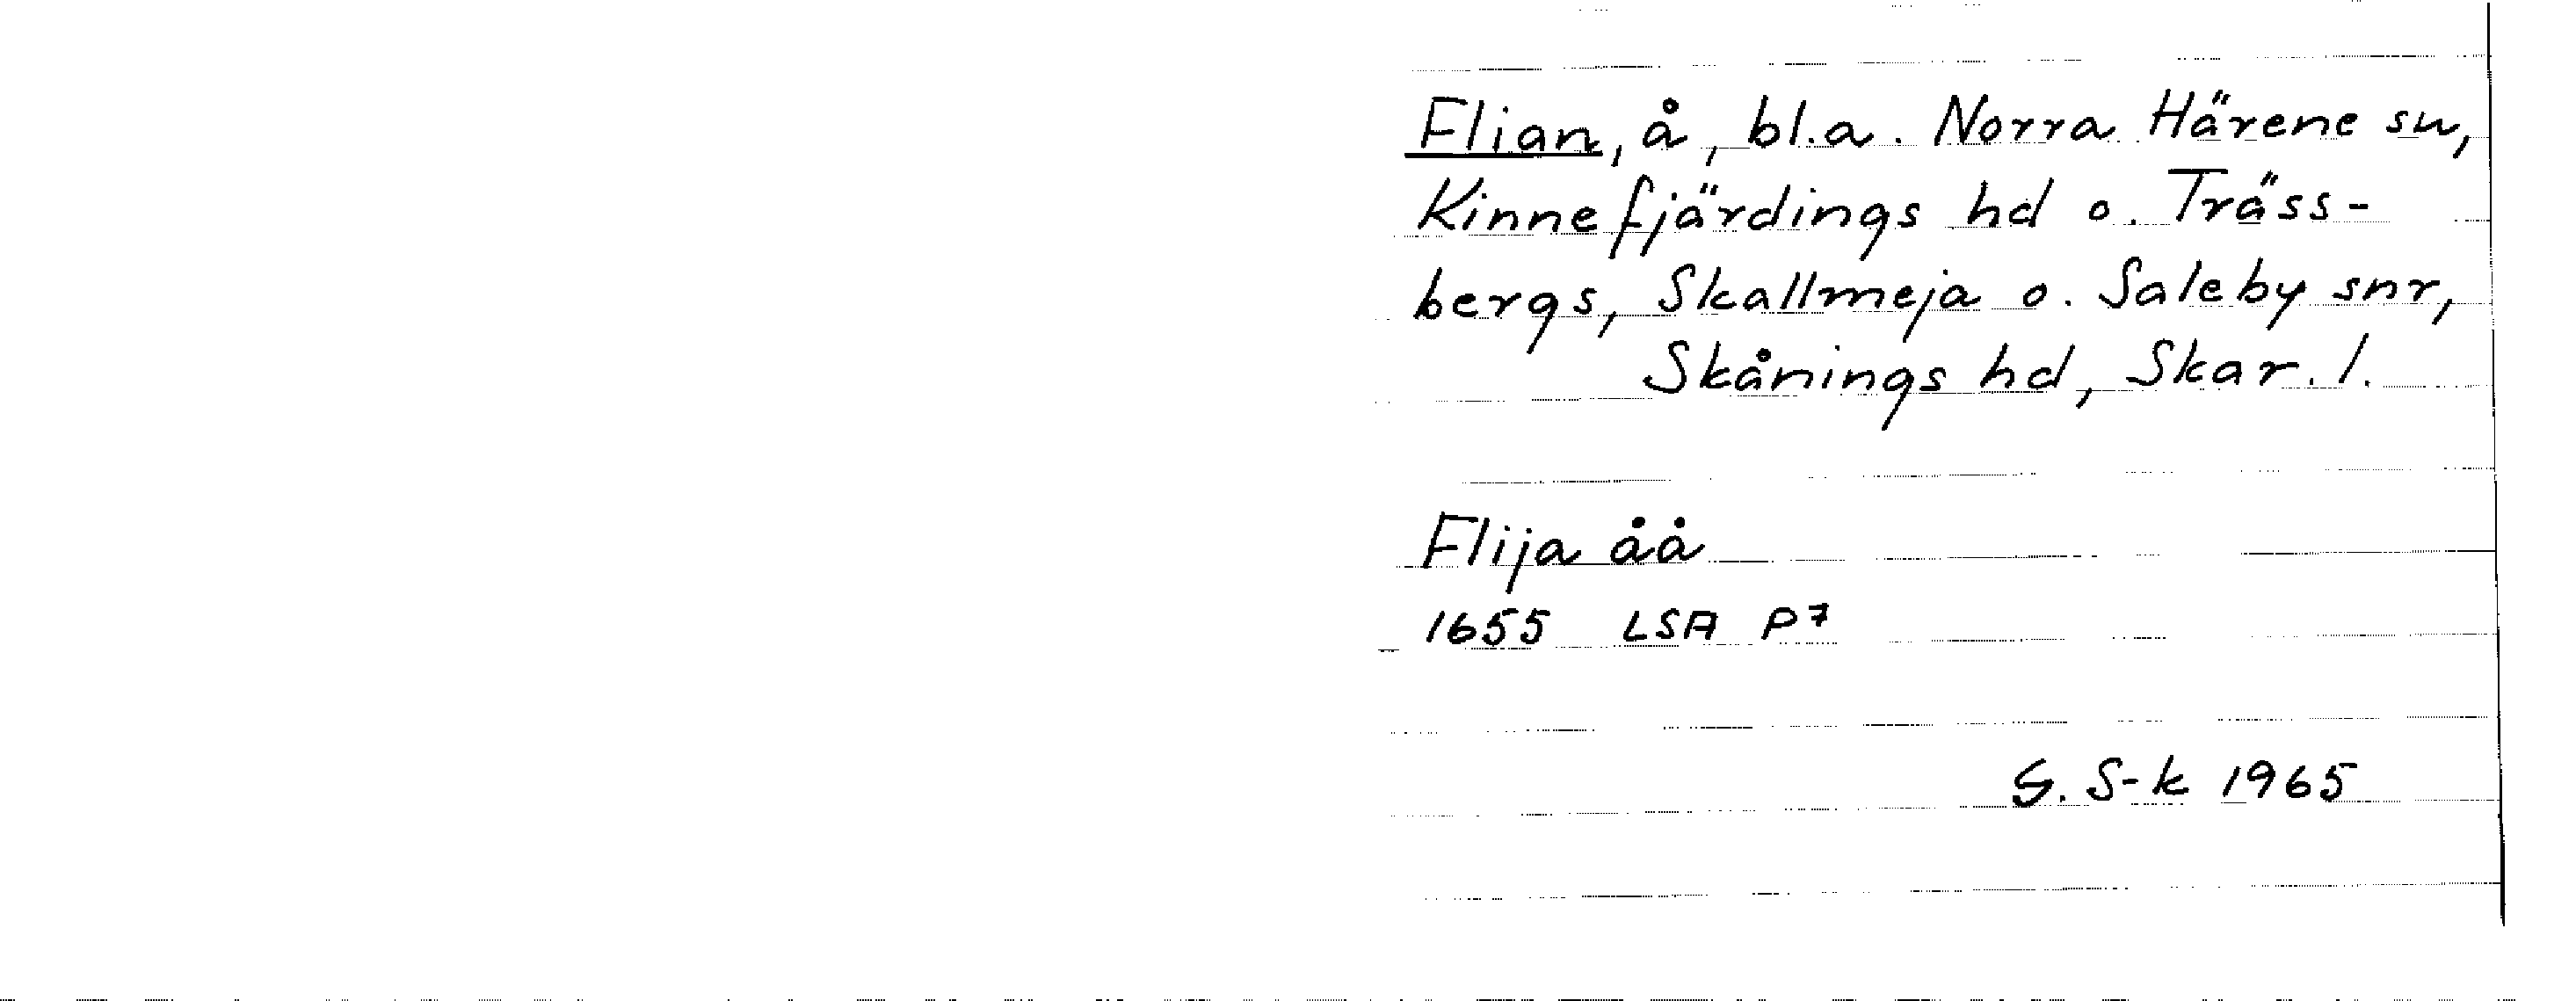 Flian, å, bl.a. Norra Härene sn,
Kinnefjärdings hd o. Träss-
bergs, Skallmeja o. Saleby snr,
Skånings hd, Skar. l.
Flija åå
1655 LSA P⁷
G. S-k 1965